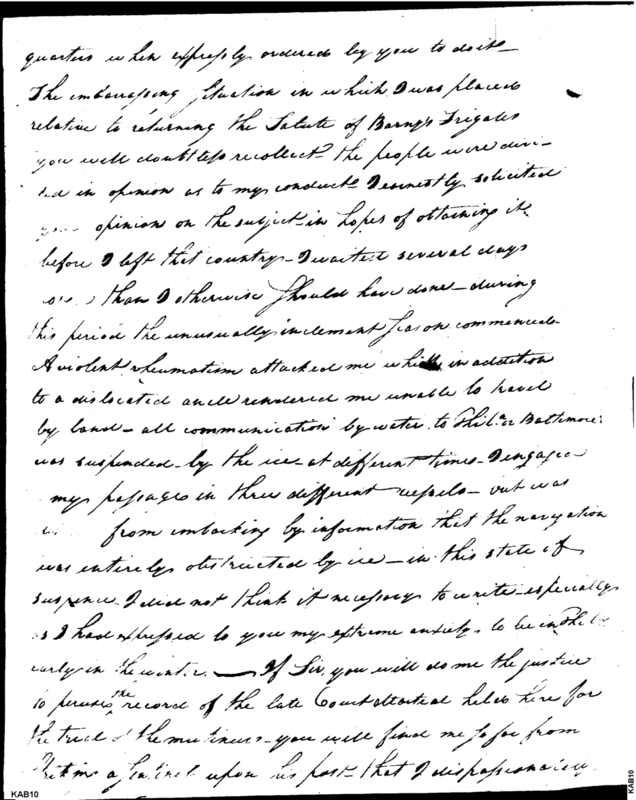 quarters when expressly ordered by you to do it—
The embarrassing situation in which I was placed
relative to returning the Salute of Barny's Frigates
you will doubtless recollect— the people were divi-
ed in opinion as to my conduct— I earnestly solicited
your opinion on the subject— in hopes of obtaining it
before I left that country— I waited several days
than I otherwise should have done— during
this period the unusually inclement season commenced—
A violent rheumatism attacked me which in addition
to a dislocated ancle rendered me unable to travel
by land— all communication by water to Phila. & Baltimore
was suspended by the ice— at different times— I engaged
my passages in three different vessels— but was
from embarking by information that the navigation
was entirely obstructed by ice— in this state of
suspence I did not think it necessary to write— especially
as I had expressed to you my extreme anxiety to be in Phila
early in the winter. — If Sir, you will do me the justice
to peruse the record of the late Court Martial held here for
the trial of the mutineers— you will find me so far from
a Sentinel upon his post— that I dispassionately
KAB10
KAB10